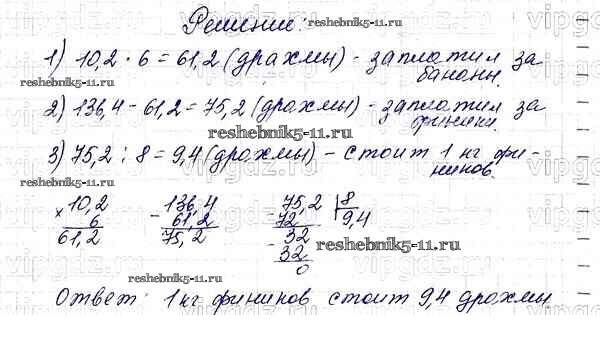 Решение:
reshebnik5-11.ru
1) 10,2 · 6 = 61,2 (драхмы) - заплатил за
бананы.
2) 136,4 - 61,2 = 75,2 (драхмы) - заплатил за
финики.
reshebnik5-11.ru
3) 75,2 : 8 = 9,4 (драхмы) - стоит 1 кг фи-
ников.
reshebnik5-11.ru
× 10,2 - 136,4 75,2 | 8
6 61,2 72 9,4
61,2 75,2 - 32
32
0
reshebnik5-11.ru
reshebnik5-11.ru
Ответ: 1 кг фиников стоит 9,4 драхмы.
vipgdz.ru